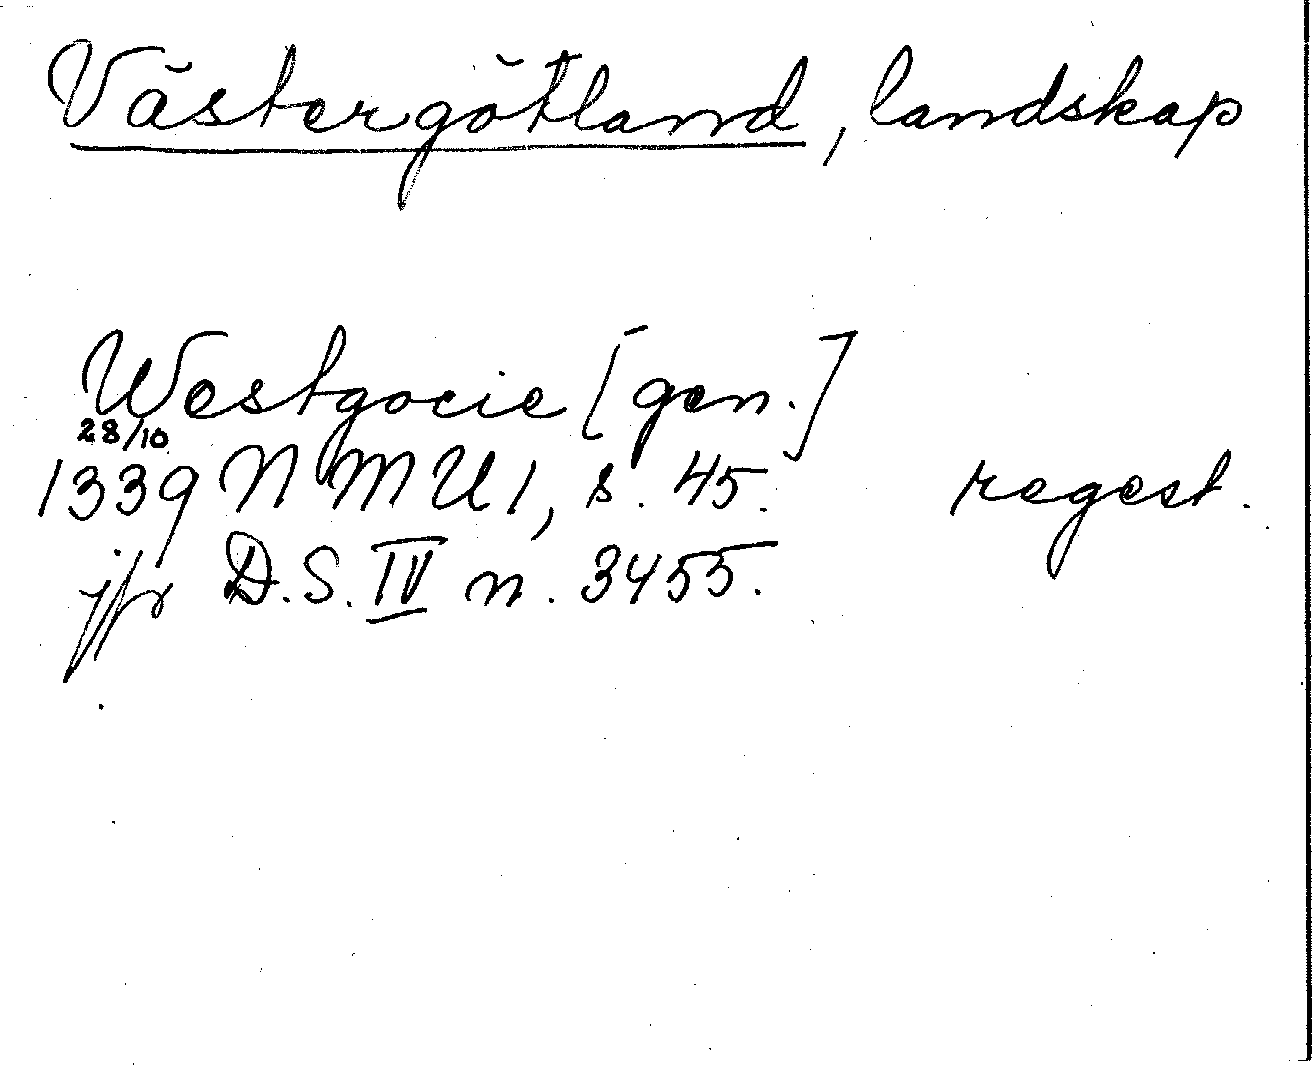 Västergötland, landskap
Westgocie [gen.]
28/10
1339 NMU 1, s. 45. regest.
jfr D.S. IV n. 3455.